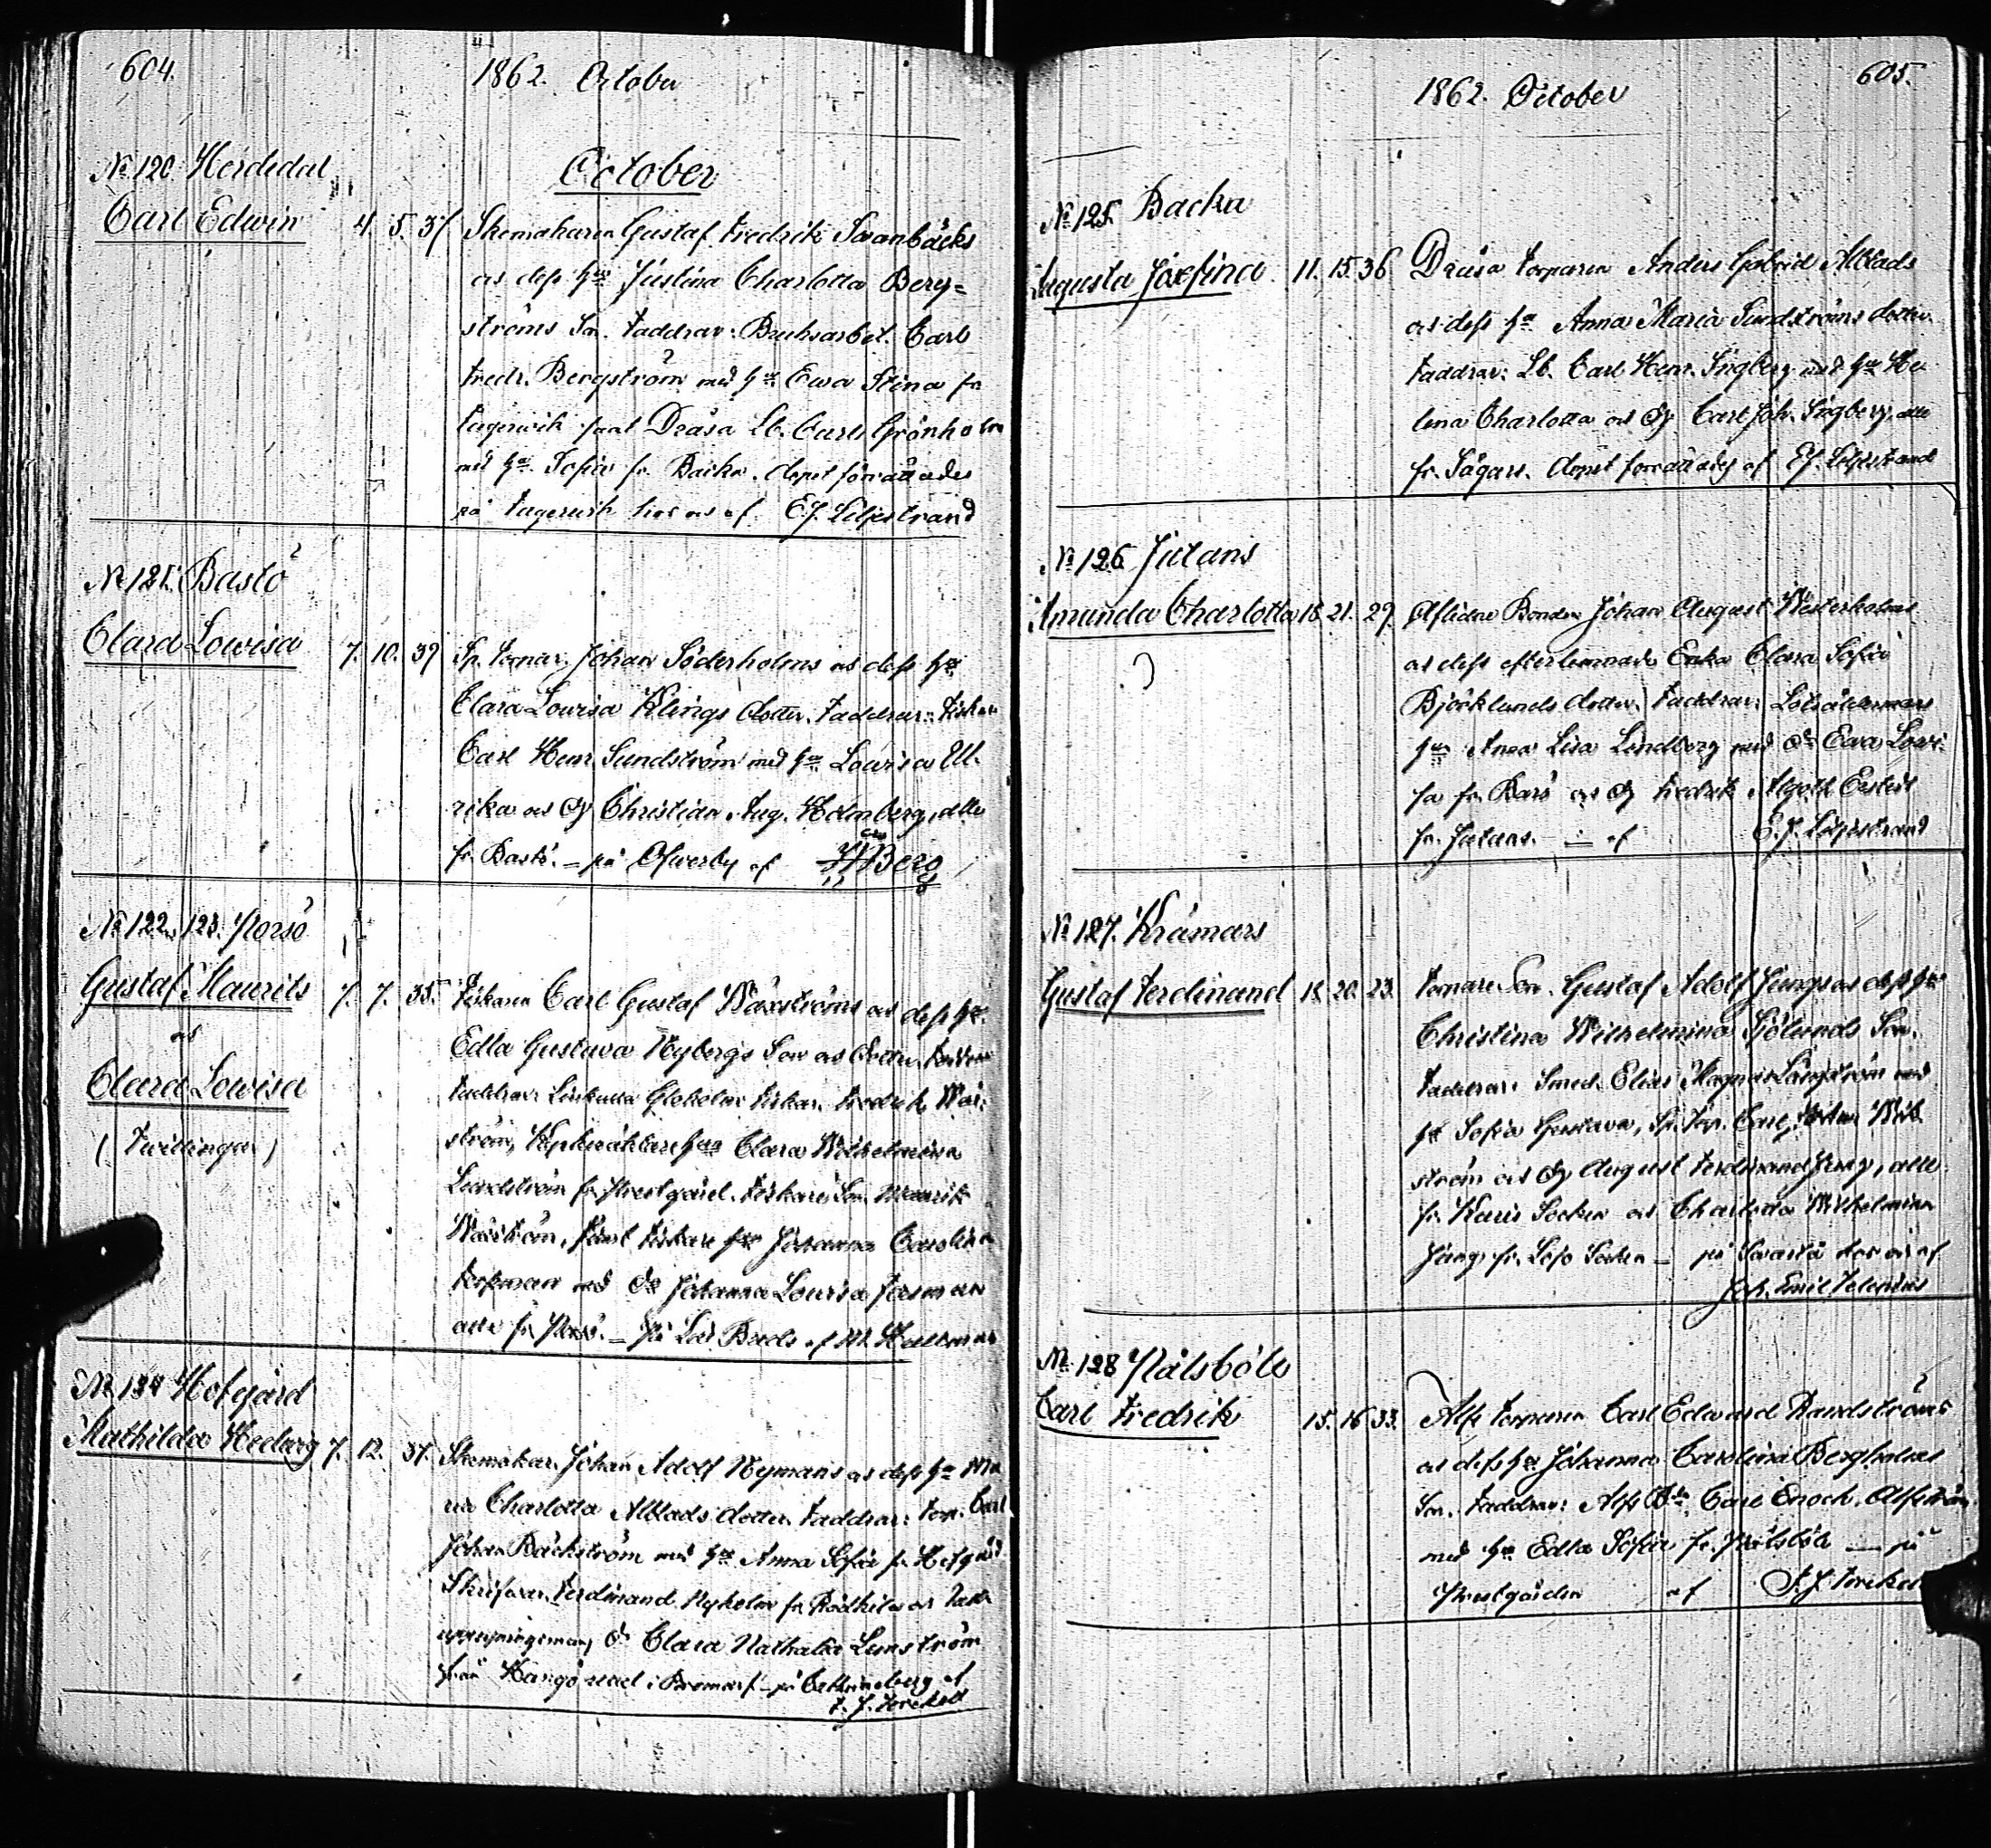 604.
1862. October
October
No 120. Herdedal
Carl Edwin 4. 5. 31
Skomakaren Gustaf Fredrik Swanbäcks
os dess hu Justina Charlotta Berg=
ströms Son. Faddrar: Bruksarbet. Carl
Fredr. Bergström med hu Ewa Stina fr
Fagerwik samt Dräsa Lb. Carl Grönholm
med hu Sofia fr. Backa. dopet förrättades
på Fagerwik hos os af E.J. Liljestrand
No 121. Bastö
Clara Lowisa 7. 10. 39
Sp. Tornar. Johan Söderholms os dess hu
Clara Lowisa Klings dotter. Faddrar: Fiskare
Carl Henr. Sundström med hu Lowisa Ul-
rika os Dg Christian Aug. Holmberg, alle
fr. Bastö. – på Ofwerby af Berg
No 122, 123. Norsö
Gustaf Maurits 7. 7. 35.
os
Clara Lowisa
(Twillingar)
Fiskaren Carl Gustaf Wäxströms os dess hu
Edla Gustava Nybergs Son os Dotter.
Faddrar: Fiskar. Fredrik Wäx-
ström, hu Clara Wilhelmina
Lundström fr. Prestgård. Fiskare Son Maurits
Wäxström, samt Fiskare hu Johanna Carolina
Forsman med Do Johanna Lowisa Forsman
alle fr Norsö. – på af M. Hallman
No 124 Hofgård
Mathilda Hedwig 7. 12. 37.
Skomakar. Johan Adolf Nymans os dess hu Ma
ria Charlotta Alblads dotter. Faddrar: Torp. Carl
Johan Bäckström med hu Anna Sofia fr Hofgård
Skrifvar. Ferdinand Nyholm fr Rödhila os
Do Clara Nathalia Lemström
från Hangö udd i Bromarf – på Cathrineberg af
F. J. Forckell
1862. October
605.
No 125. Backa
Augusta Josefina 11. 15. 36
Dräsa Torparen Anders Gabriel Alblads
os dess hu Anna Maria Sundströms dotter
Faddrar: Lb. Carl Henr. Ingberg med hu He-
lena Charlotta os Dg Carl Joh. Ingberg, alle
fr. Sågars. dopet förrättades af E.J. Liljestrand
No 126 Jutans
Amanda Charlotta 18. 21. 29.
Aflidne Bonden Johan August Westerholms
os dess efterlemnade Enka Clara Sofia
Björklunds dotter. Faddrar: Lotsåldermans
hu Anna Lisa Lindberg med Do Ewa Lowi-
sa fr. Barö os Dg Fredrik Algoth
fr. Jutans. – af E.J. Liljestrand
No 127. Krämars
Gustaf Ferdinand 18. 20. 23.
Tornare Son. Gustaf Adolf Jungs os dess hu
Christina Wilhelmina Sjölunds Son.
Faddrar: Smed. Elias Magnus Långström med
hu Sofia Gustava, Carl Wik
ström os Dg August Ferdinand Jung, alle
fr. Karis Socken os Charlotta Wilhelmina
Jung fr. Lojo Socken – på Svartå hos os af
Joh. Emil Telenius
No 128 Nålsböle
Carl Fredrik 15. 16. 33.
Alfs Torparen Carl Edward Randströms
os dess hu Johanna Carolina Bergholms
Son. Faddrar: Alfs Carl Enoch Alfström
med hu Edla Sofia fr. Nålsböle – på
Prestgården af F. J. Forckell